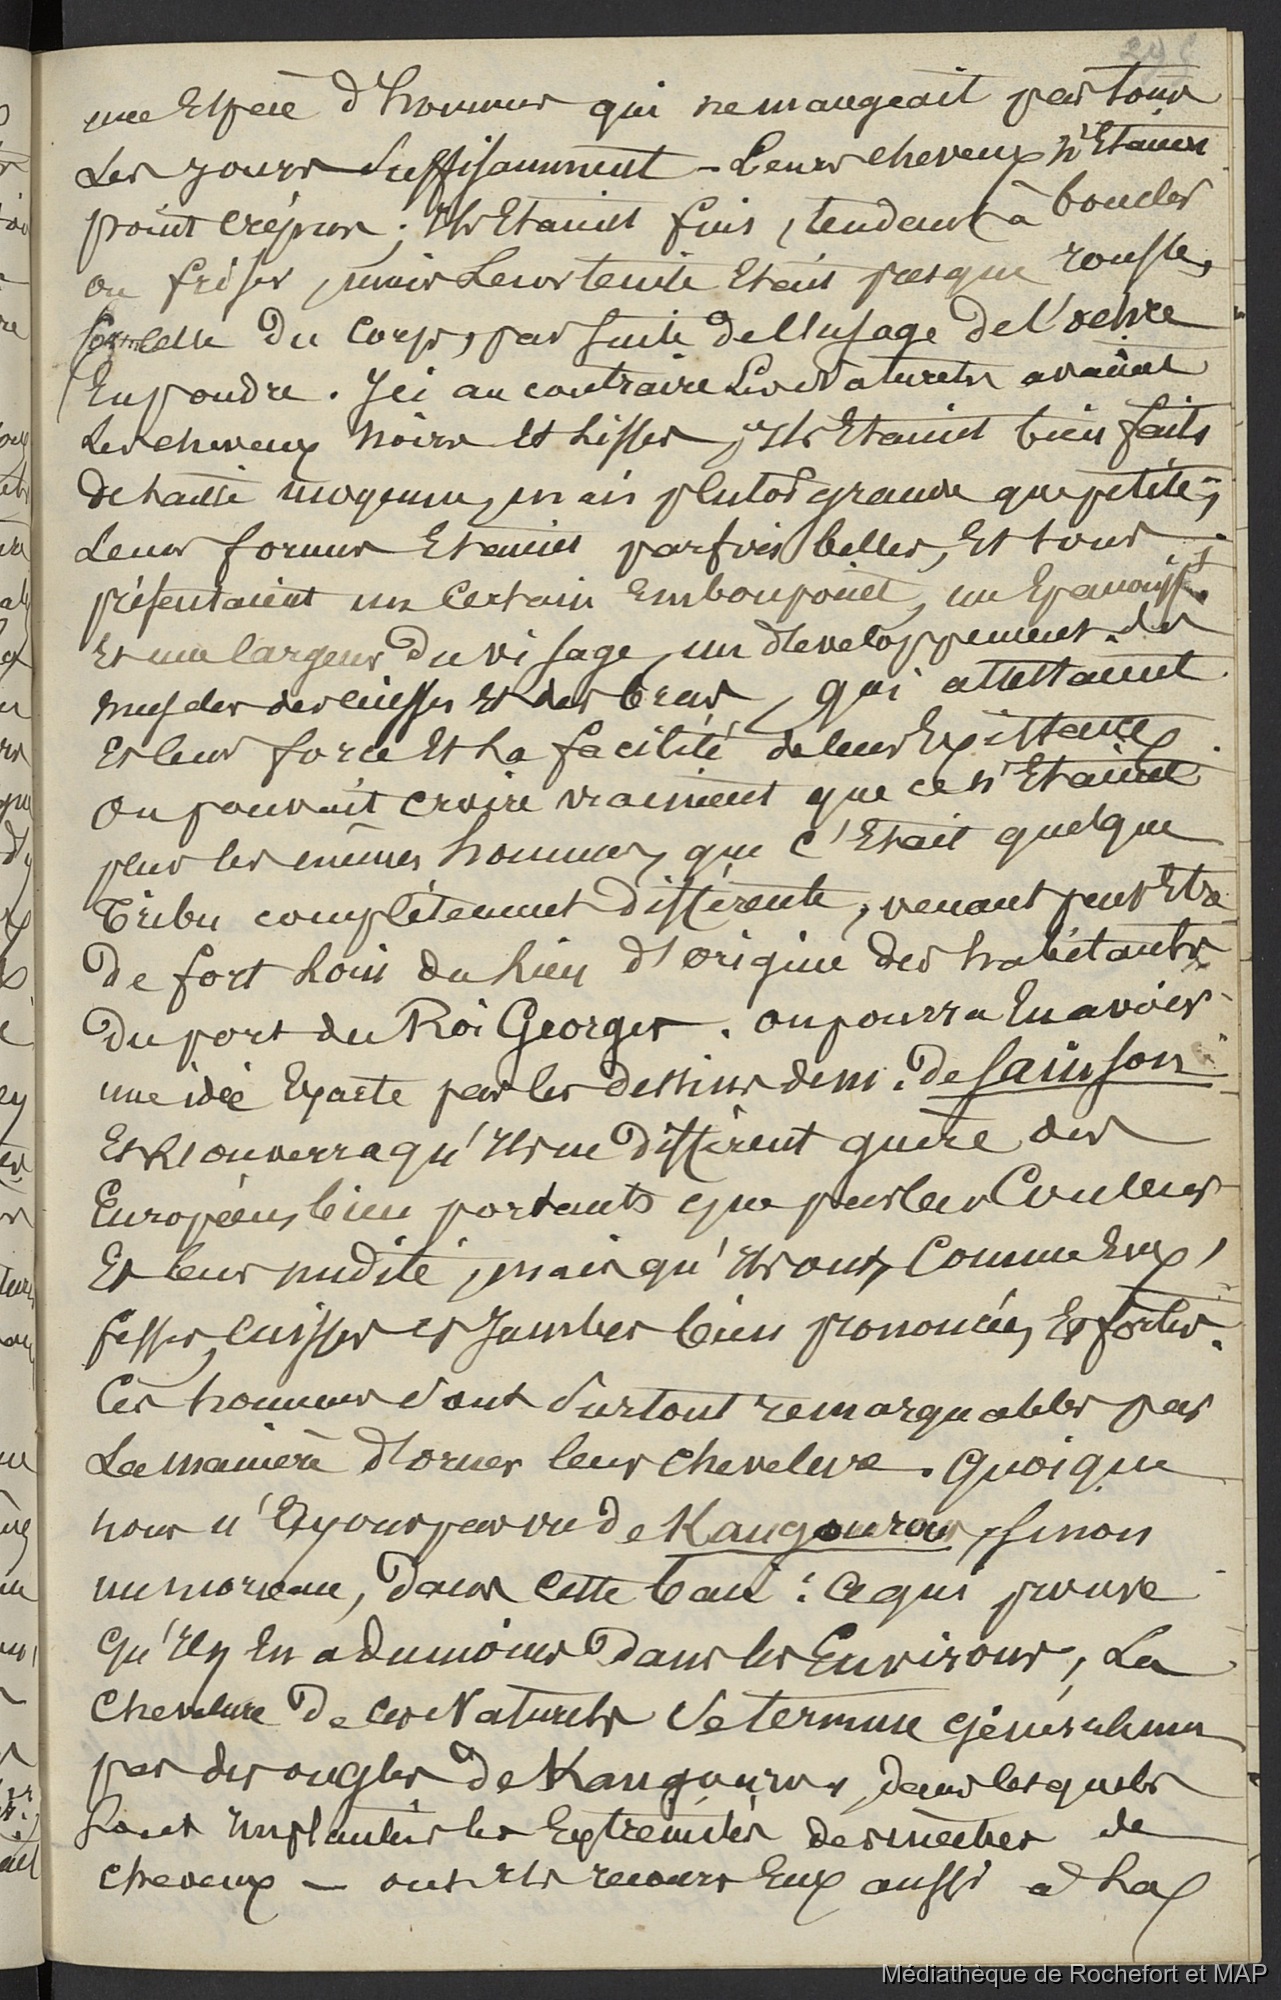 une Espèce d'hommes qui ne mangeait pas tous
Les jours suffisamment - Leurs cheveux n'Etaient
point crépus ; Ils Etaient fins, tendant à boucler
ou friser, mais Leur teinte Etait presque rousse,
comme celle Du Corps, par suite de l'usage de L'ochre
En poudre. Ici au contraire Les Naturels avaient
Les cheveux Noirs Et Lisses ; Ils Etaient bien faits
De taille moyenne, mais plutot grande que petite ;
Leurs formes Etaient parfois belles, Et tous
présentaient un Certain Embonpoint, un Epanouisst.
Et une largeur Du visage, un développement des
muscles des cuisses Et des bras, qui attestaient
Et leur force Et La facilité de leur Existance,
on pouvait croire vraiment que ce n'Etaient
plus les mêmes hommes, que C'Etait quelque
Tribu complètement Différente, venant peut Etre
De fort Loin du Lieu d'origine des habitants
Du port du Roi Georges. on pourra En avoir
une idée Exacte par les dessins de m. De Sainson
Et L'on verra qu'Ils ne Different guère des
Européens bien portants que par leur Couleur
Et leur nudité, mais qu'Ils ont, Comme Eux,
fesses, cuisses et Jambes bien prononcées, Et fortes.
Ces hommes sont surtout remarquables par
La manière d'orner leur chevelure. Quoique
nous n'Ayons pas vu de Kangourous, sinon
un morceau, Dans cette baie : Ce qui prouve
qu'Il y En a du moins Dans les Environs, La
Chevelure De ces Naturels se termine généralement
par des ongles De Kangourous, dans lesquels
sont Implantées les Extrémités des mèches de
cheveux — ont Ils recours Eux aussi à La
Médiathèque de Rochefort et MAP